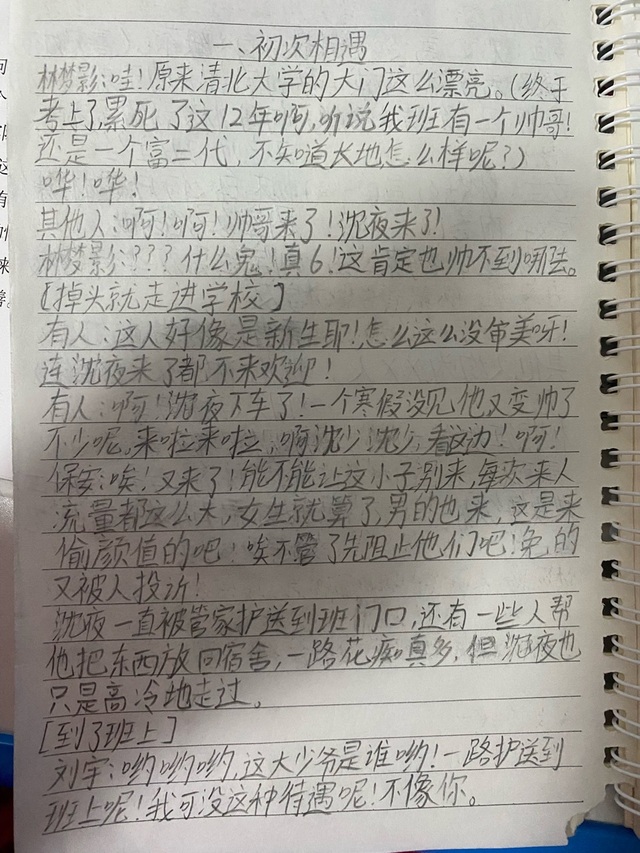 一、初次相遇
林梦影:哇!原来清北大学的大门这么漂亮。(终于
考上了,累死了这12年啊,听说我班有一个帅哥!
还是一个富二代,不知道长地怎么样呢?)
哗!哗!
其他人:啊!啊!帅哥来了!沈夜来了!
林梦影:???什么鬼!真6!这肯定也帅不到哪去。
[掉头就走进学校]
有人:这人好像是新生耶!怎么这么没审美呀!
连沈夜来了都不来欢迎!
有人:啊!沈夜下车了!一个寒假没见他又变帅了
不少呢,来啦来啦,啊沈少沈少看这边!啊!
保安:唉!又来了!能不能让这小子别来,每次来人
流量都这么大,女生就算了,男的也来,这是来
偷颜值的吧!唉不管了先阻止他们吧!免的
又被人投诉!
沈夜一直被管家护送到班门口,还有一些人帮
他把东西放回宿舍,一路花痴真多,但沈夜也
只是高冷地走过。
[到了班上]
刘宇:哟哟哟,这大少爷是谁哟!一路护送到
班上呢!我可没这种待遇呢!不像你。